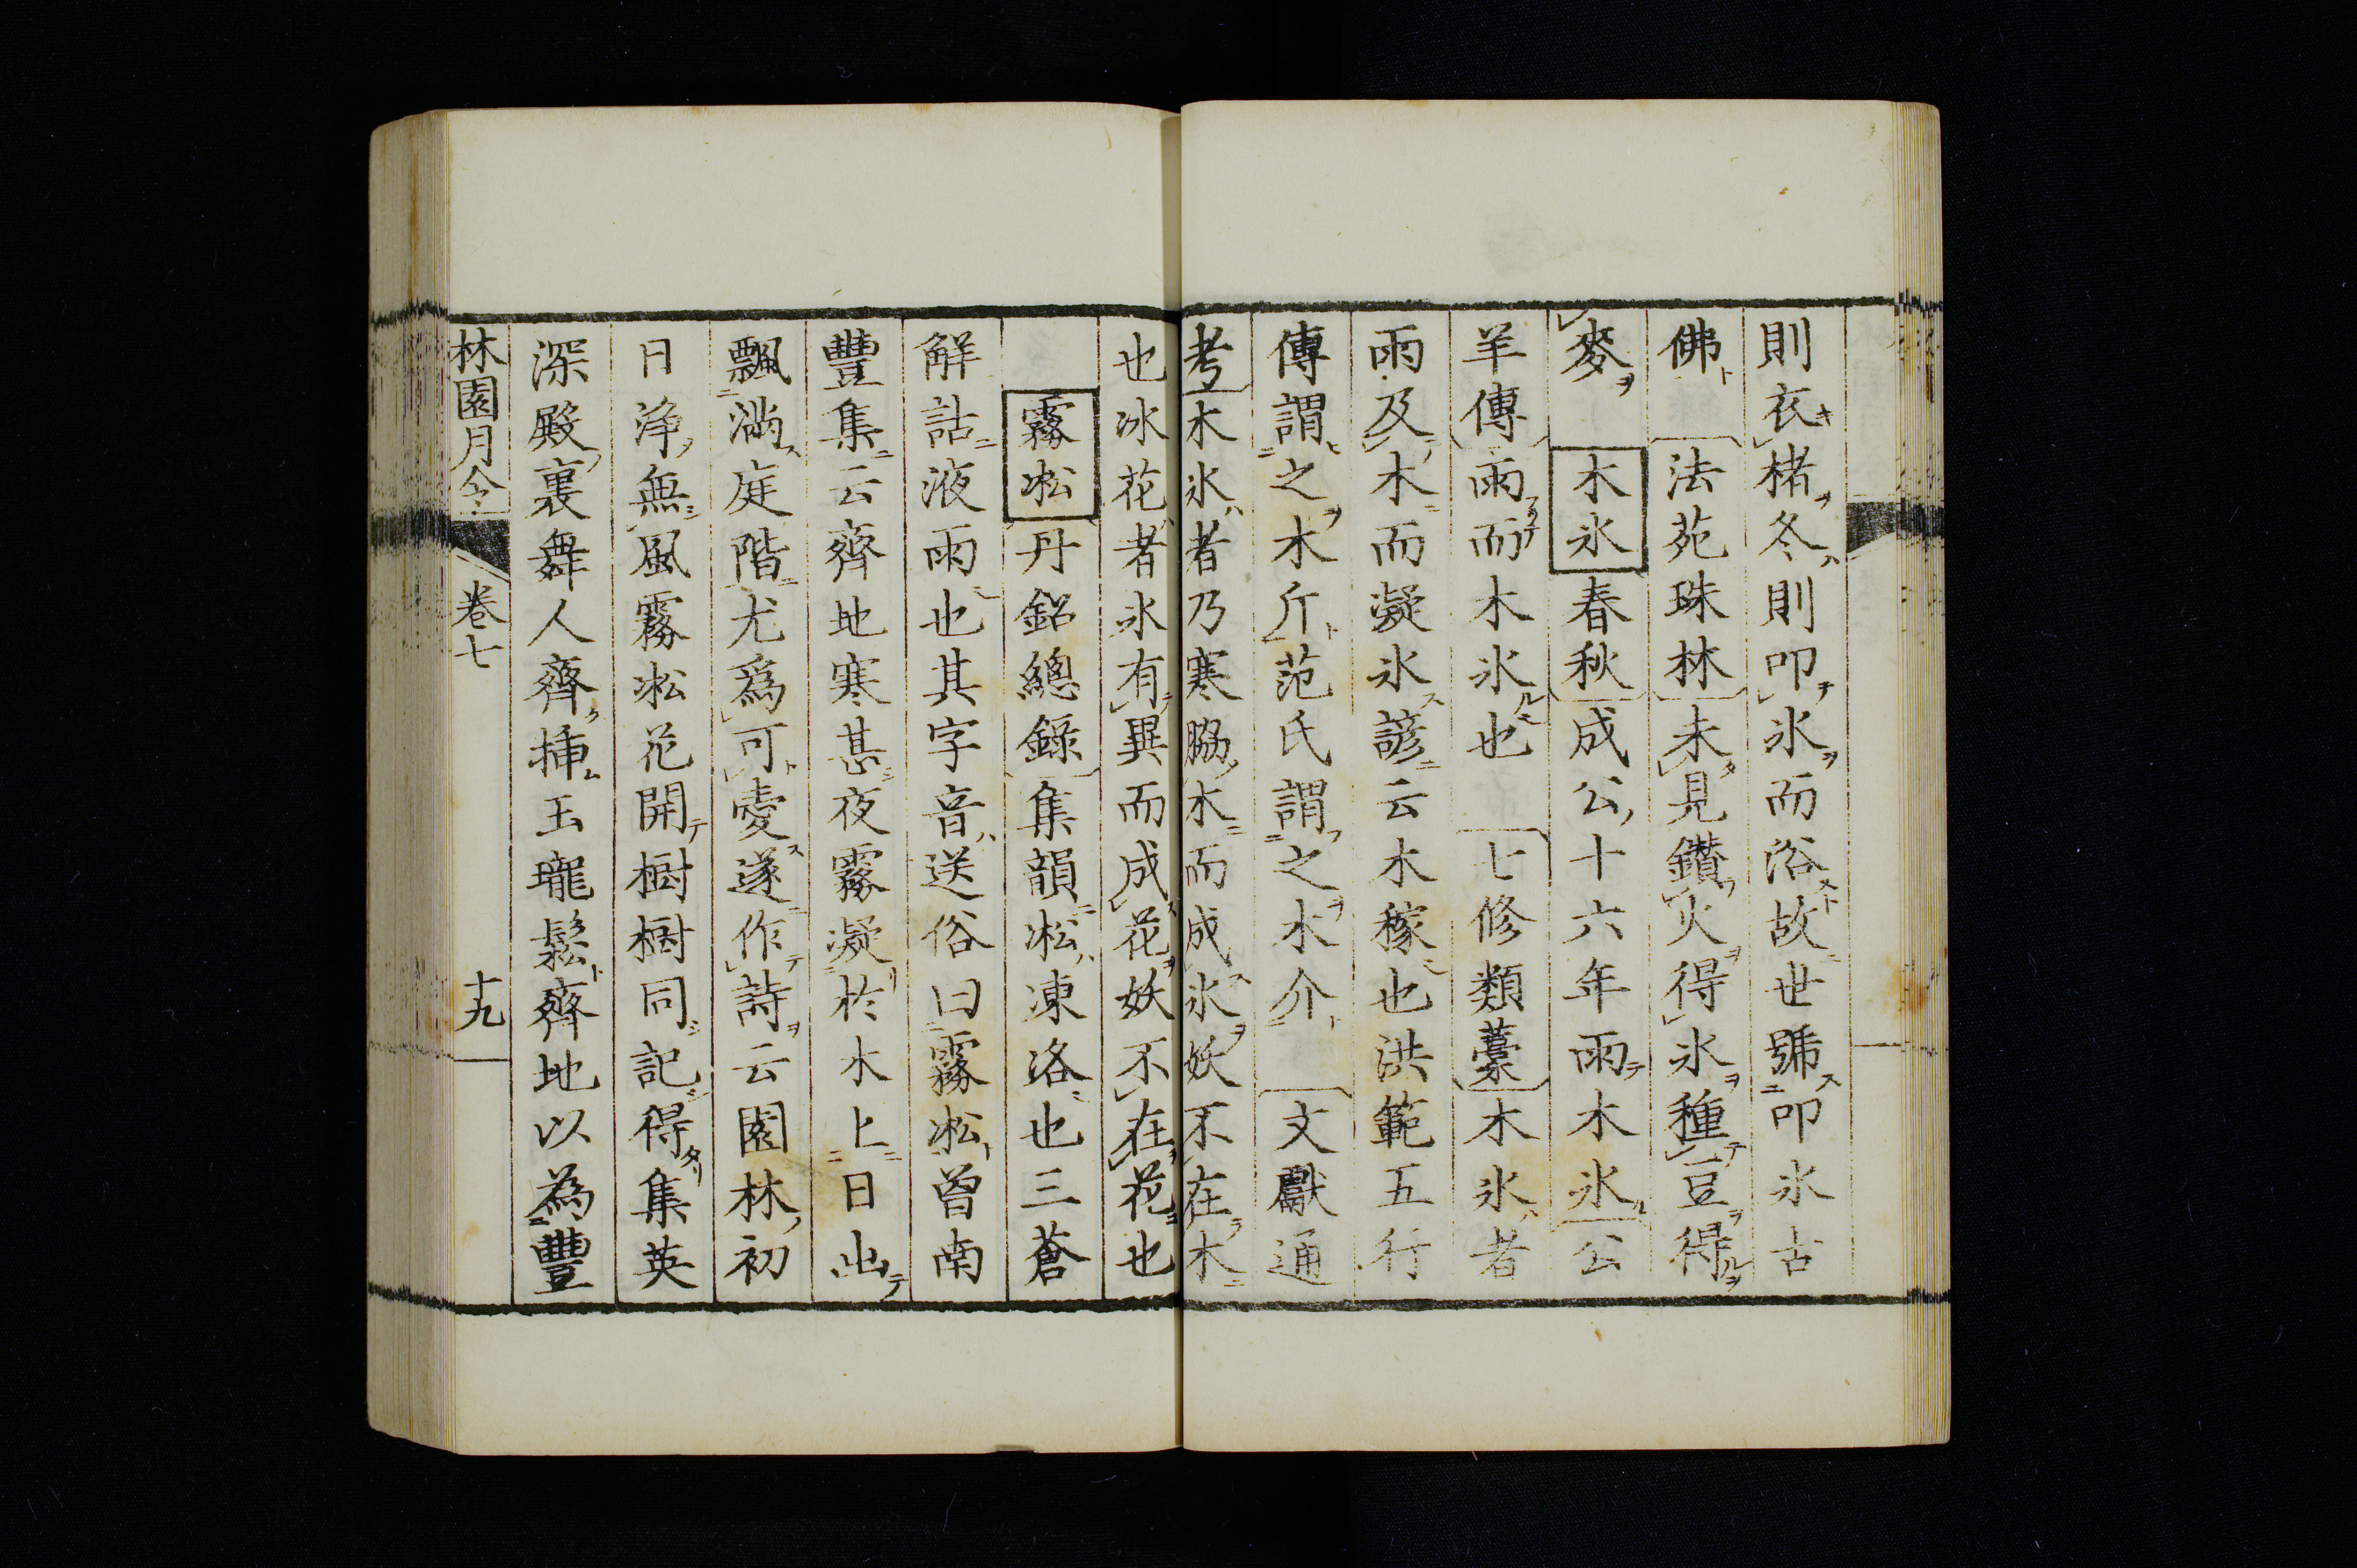 則衣楮冬則叩氷而浴故世號叩氷古
佛 法苑珠林 未見鑽火得氷種豆得
麥 木氷 春秋 成公十六年雨木氷 公
羊傳 雨而木氷也 七修類藁 木氷者
雨及木而凝氷諺云木稼也洪範五行
傳謂之木斤范氏謂之木介 文獻通
考 木氷者乃寒脇木而成氷妖不在木
也冰花者氷有異而成花妖不在花也
霧凇 丹鉛總錄 集韻凇凍洛也三蒼
解詁液雨也其字音送俗曰霧凇曾南
豐集云齊地寒甚夜霧凝於木上日出
飄滿庭階尤爲可愛遂作詩云園林初
日浄無風霧凇花開樹樹同記得集英
深殿裏舞人齊挿玉瓏鬆齊地以為豐
林園月令 卷七 十九